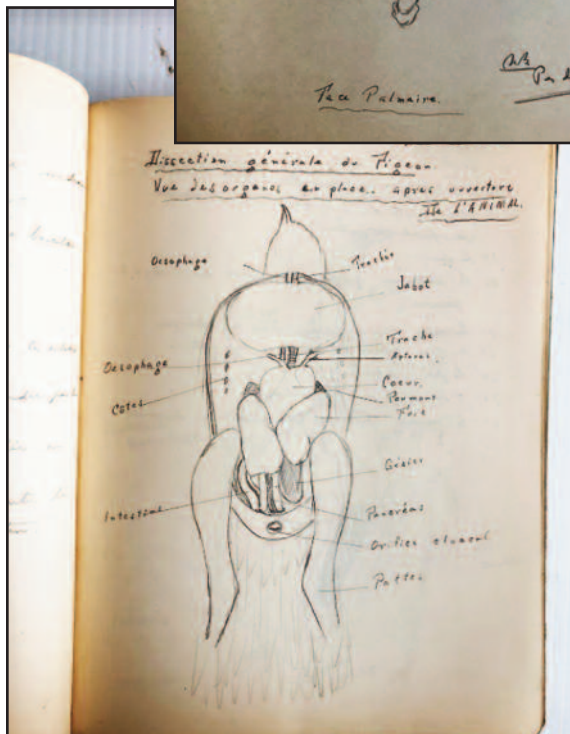 Face Palmaire.
Dissection générale du Pigeon.
Vue des organes en place. après ouverture
de l'ANIMAL.
Oesophage
Trachée
Jabot
Trache
Oesophage
Coeur.
Cotes
Poumons
Foie
Gésier
Intestins
Pancréas
Orifice cloacal
Pattes